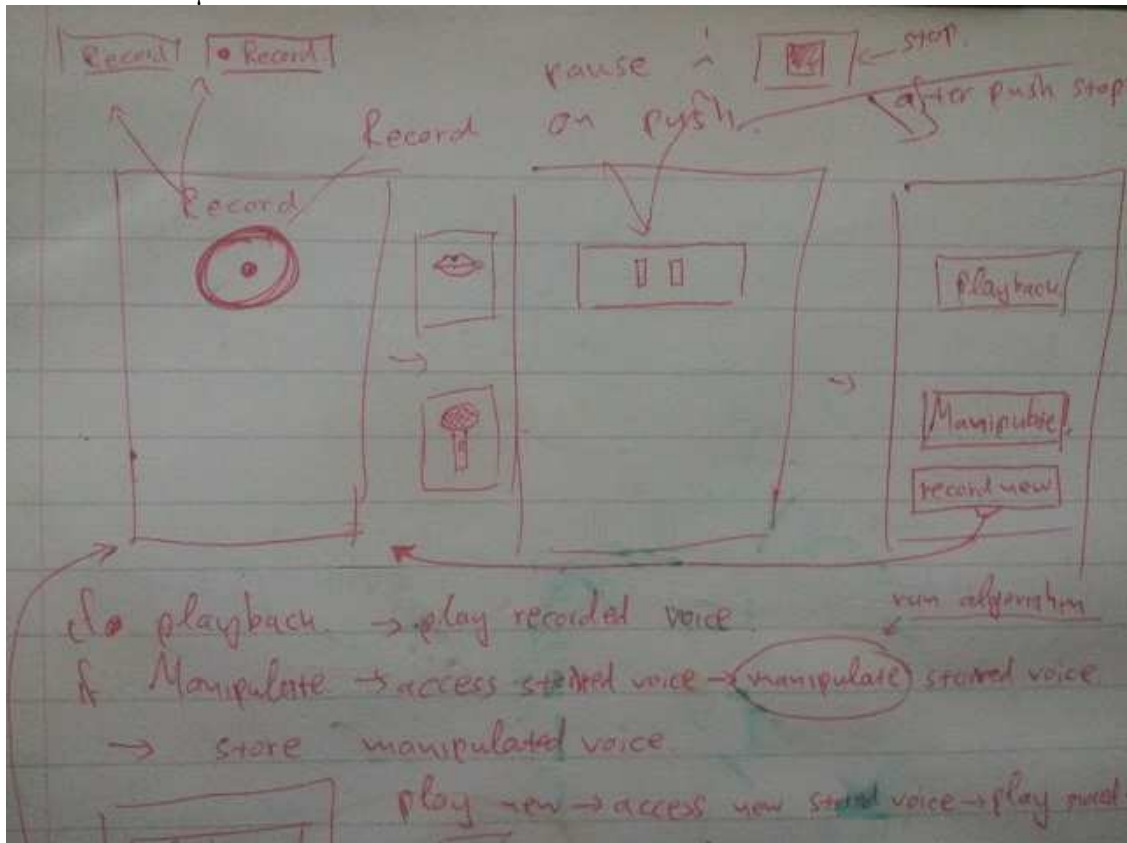 Record • Record
pause
stop.
on push.
after push stop
Record
Record
Playback
Manipulate
record new
playback → play recorded voice
run algorithm
If Manipulate → access stored voice → manipulate stored voice.
→ store manipulated voice
play new → access new stored voice → play